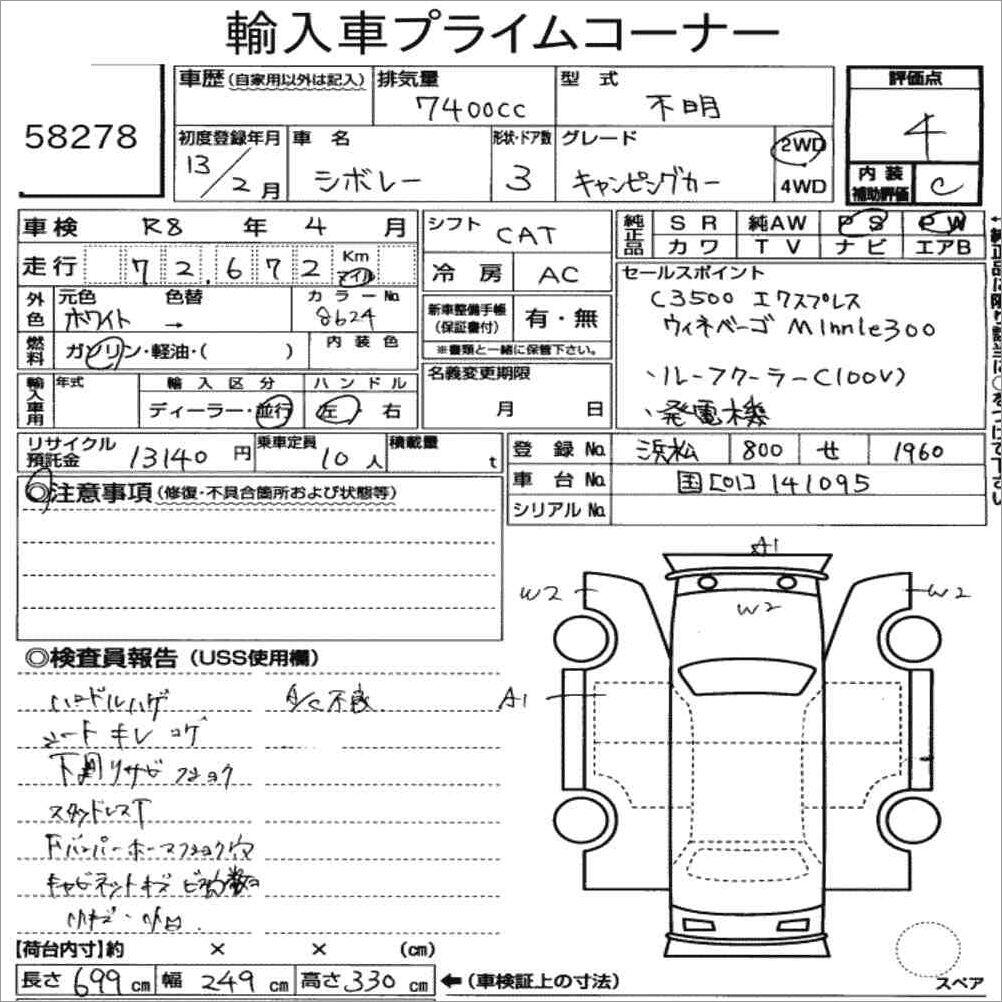 輸入車プライムコーナー
58278
車歴(自家用以外は記入)
排気量
7400cc
型 式
不明
評価点
4
初度登録年月
13/2月
車 名
シボレー
形状・ドア数
3
グレード
キャンピングカー
2WD
4WD
内 装
補助評価
C
車検 R8 年 4 月
シフト CAT
純正品
SR 純AW PS PW
カワ TV ナビ エアB
走行 72,672 Km マイル
冷 房 AC
セールスポイント
C3500 エクスプレス
ウィネベーゴ MInnIe300
・ルーフクーラーC(100V)
・発電機
外色
元色 色替
ホワイト →
カラーNo.
8624
新車整備手帳
(保証書付)
有・無
※書類と一緒に保管下さい。
燃料
ガソリン・軽油・( )
内 装 色
輸入車用
年式
輸 入 区 分
ディーラー・並行
ハ ン ド ル
左・右
名義変更期限
月 日
リサイクル
預託金 13140 円
乗車定員
10 人
積載量
t
登 録 No. 浜松 800 せ 1960
車 台 No. 国[01]141095
シリアル No.
◎注意事項(修復・不具合箇所および状態等)
◎検査員報告(USS使用欄)
ハンドルハゲ
A/C不良
シートキレ コゲ
下回リサビ フショク
スタッドレスT
キャビネットキズ ビス穴数コ
A1
W2
W2
W2
A1
【荷台内寸】約 × × (cm)
長さ 699 cm 幅 249 cm 高さ 330 cm ←(車検証上の寸法)
スペア